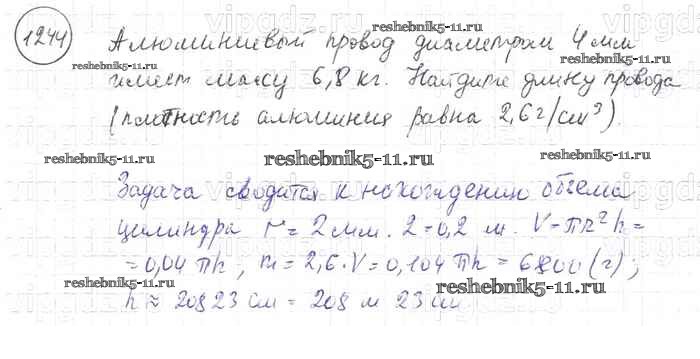 1244
Алюминиевый провод диаметром 4 мм
имеет массу 6,8 кг. Найдите длину провода
(плотность алюминия равна 2,6 г/см³).
Задача сводится к нахождению объема
цилиндра r = 2 мм. 2 = 0,2 м. V - πR²h =
= 0,04 πh, m = 2,6·V = 0,104 πh = 6800 (г);
h ≈ 20823 см = 208 м 23 см
reshebnik5-11.ru
reshebnik5-11.ru
reshebnik5-11.ru
reshebnik5-11.ru
reshebnik5-11.ru
reshebnik5-11.ru
reshebnik5-11.ru
reshebnik5-11.ru